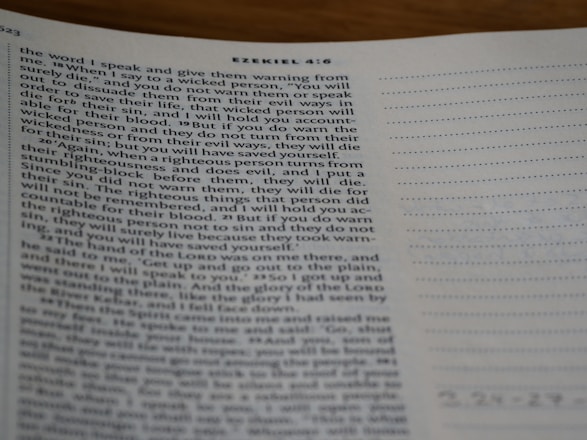 523
EZEKIEL 4:6
the word I speak and give them warning from
me. 18 When I say to a wicked person, "You will
surely die," and you do not warn them or speak
out to dissuade them from their evil ways in
order to save their life, that wicked person will
die for b their sin, and I will hold you account-
able for their blood. 19 But if you do warn the
wicked person and they do not turn from their
wickedness or from their evil ways, they will die
for their sin; but you will have saved yourself.
20 'Again, when a righteous person turns from
their righteousness and does evil, and I put a
stumbling-block before them, they will die.
Since you did not warn them, they will die for
their sin. The righteous things that person did
will not be remembered, and I will hold you ac-
countable for their blood. 21 But if you do warn
the righteous person not to sin and they do not
sin, they will surely live because they took warn-
ing, and you will have saved yourself.'
22 The hand of the LORD was on me there, and
he said to me, 'Get up and go out to the plain,
and there I will speak to you.' 23 So I got up and
went out to the plain. And the glory of the LORD
was standing there, like the glory I had seen by
the River Kebar, and I fell face down.
24 Then the Spirit came into me and raised me
to my feet. He spoke to me and said: 'Go, shut
yourself inside your house. 25 And you, son of
man, they will tie with ropes; you will be bound
so that you cannot go out among the people. 26 I
will make your tongue stick to the roof of your
mouth so that you will be silent and unable to
rebuke them, for they are a rebellious people.
2 24-27